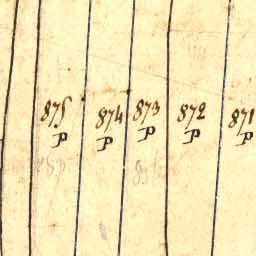 875 874 873 872 871
P P P P P